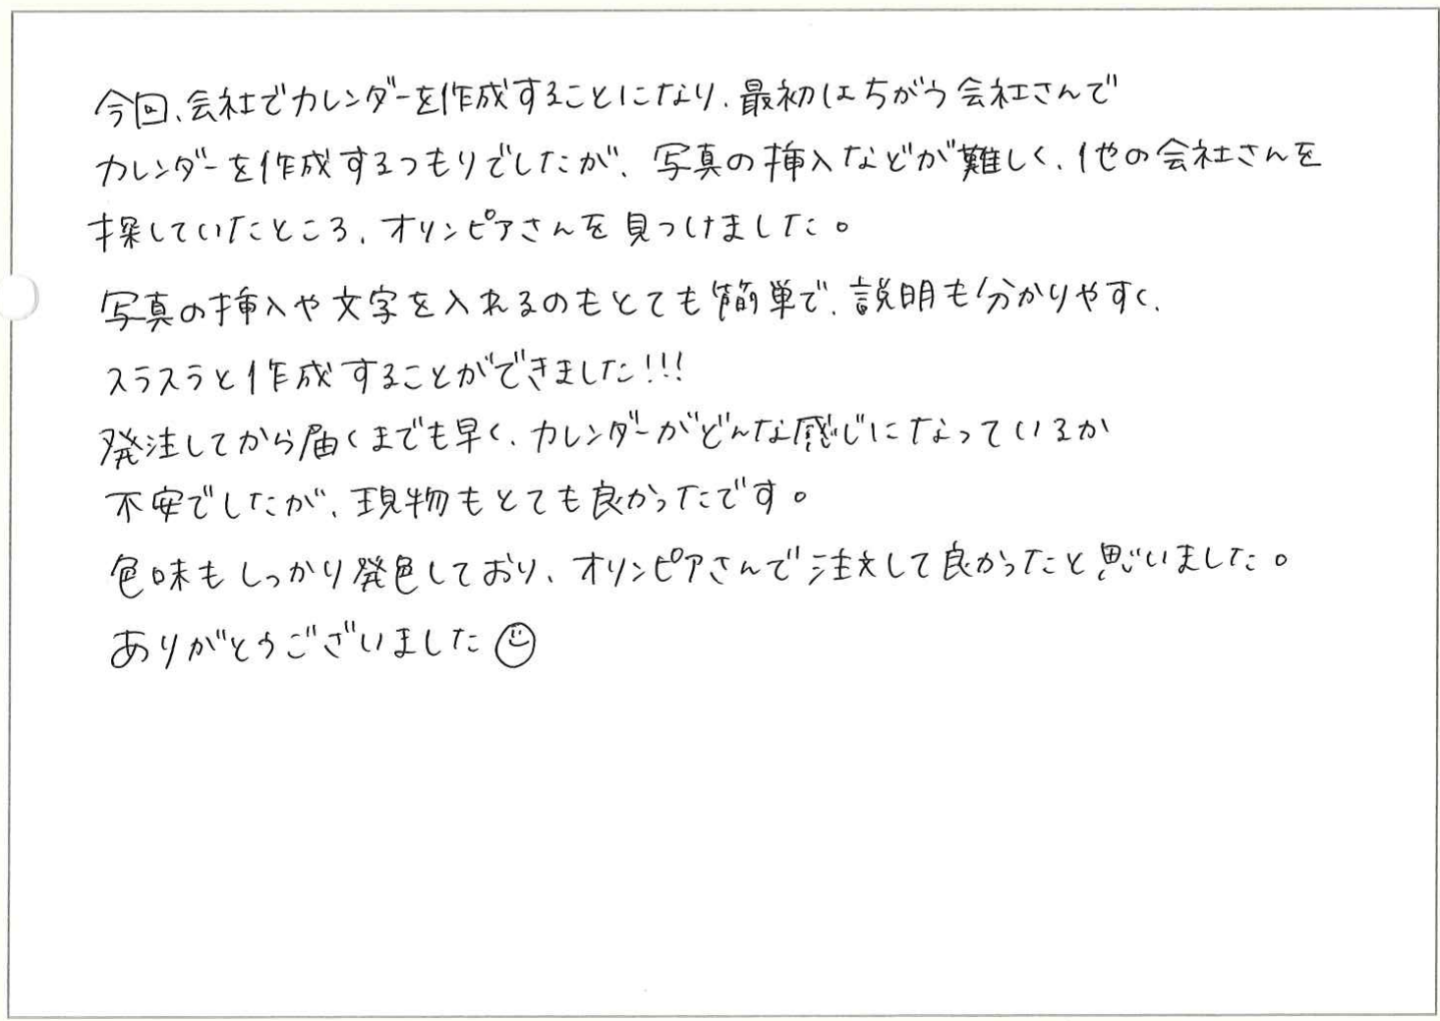 今回、会社でカレンダーを作成することになり、最初はちがう会社さんで
カレンダーを作成するつもりでしたが、写真の挿入などが難しく、他の会社さんを
探していたところ、オリンピアさんを見つけました。
写真の挿入や文字を入れるのもとても簡単で、説明も分かりやすく、
スラスラと作成することができました!!!
発注してから届くまでも早く、カレンダーがどんな感じになっているか
不安でしたが、現物もとても良かったです。
色味もしっかり発色しており、オリンピアさんで注文して良かったと思いました。
ありがとうございました☺